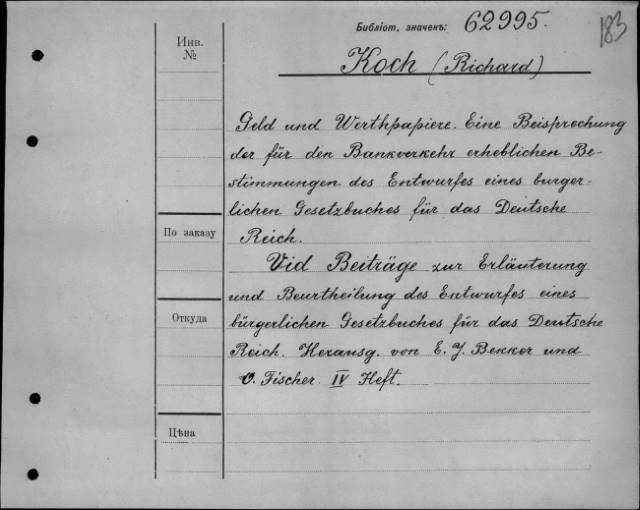 Библіот. значекъ: 62995.
183
Инв. №
Koch (Richard)
Geld und Werthpapiere. Eine Beisprechung
der für den Bankverkehr erheblichen Be-
stimmungen des Entwurfes eines burger-
lichen Gesetzbuches für das Deutsche
Reich.
По заказу
Vid Beiträge zur Erläuterung
und Beurtheilung des Entwurfes eines
Откуда
bürgerlichen Gesetzbuches für das Deutsche
Reich. Herausg. von E. J. Bekker und
O. Fischer. IV Heft.
Цѣна